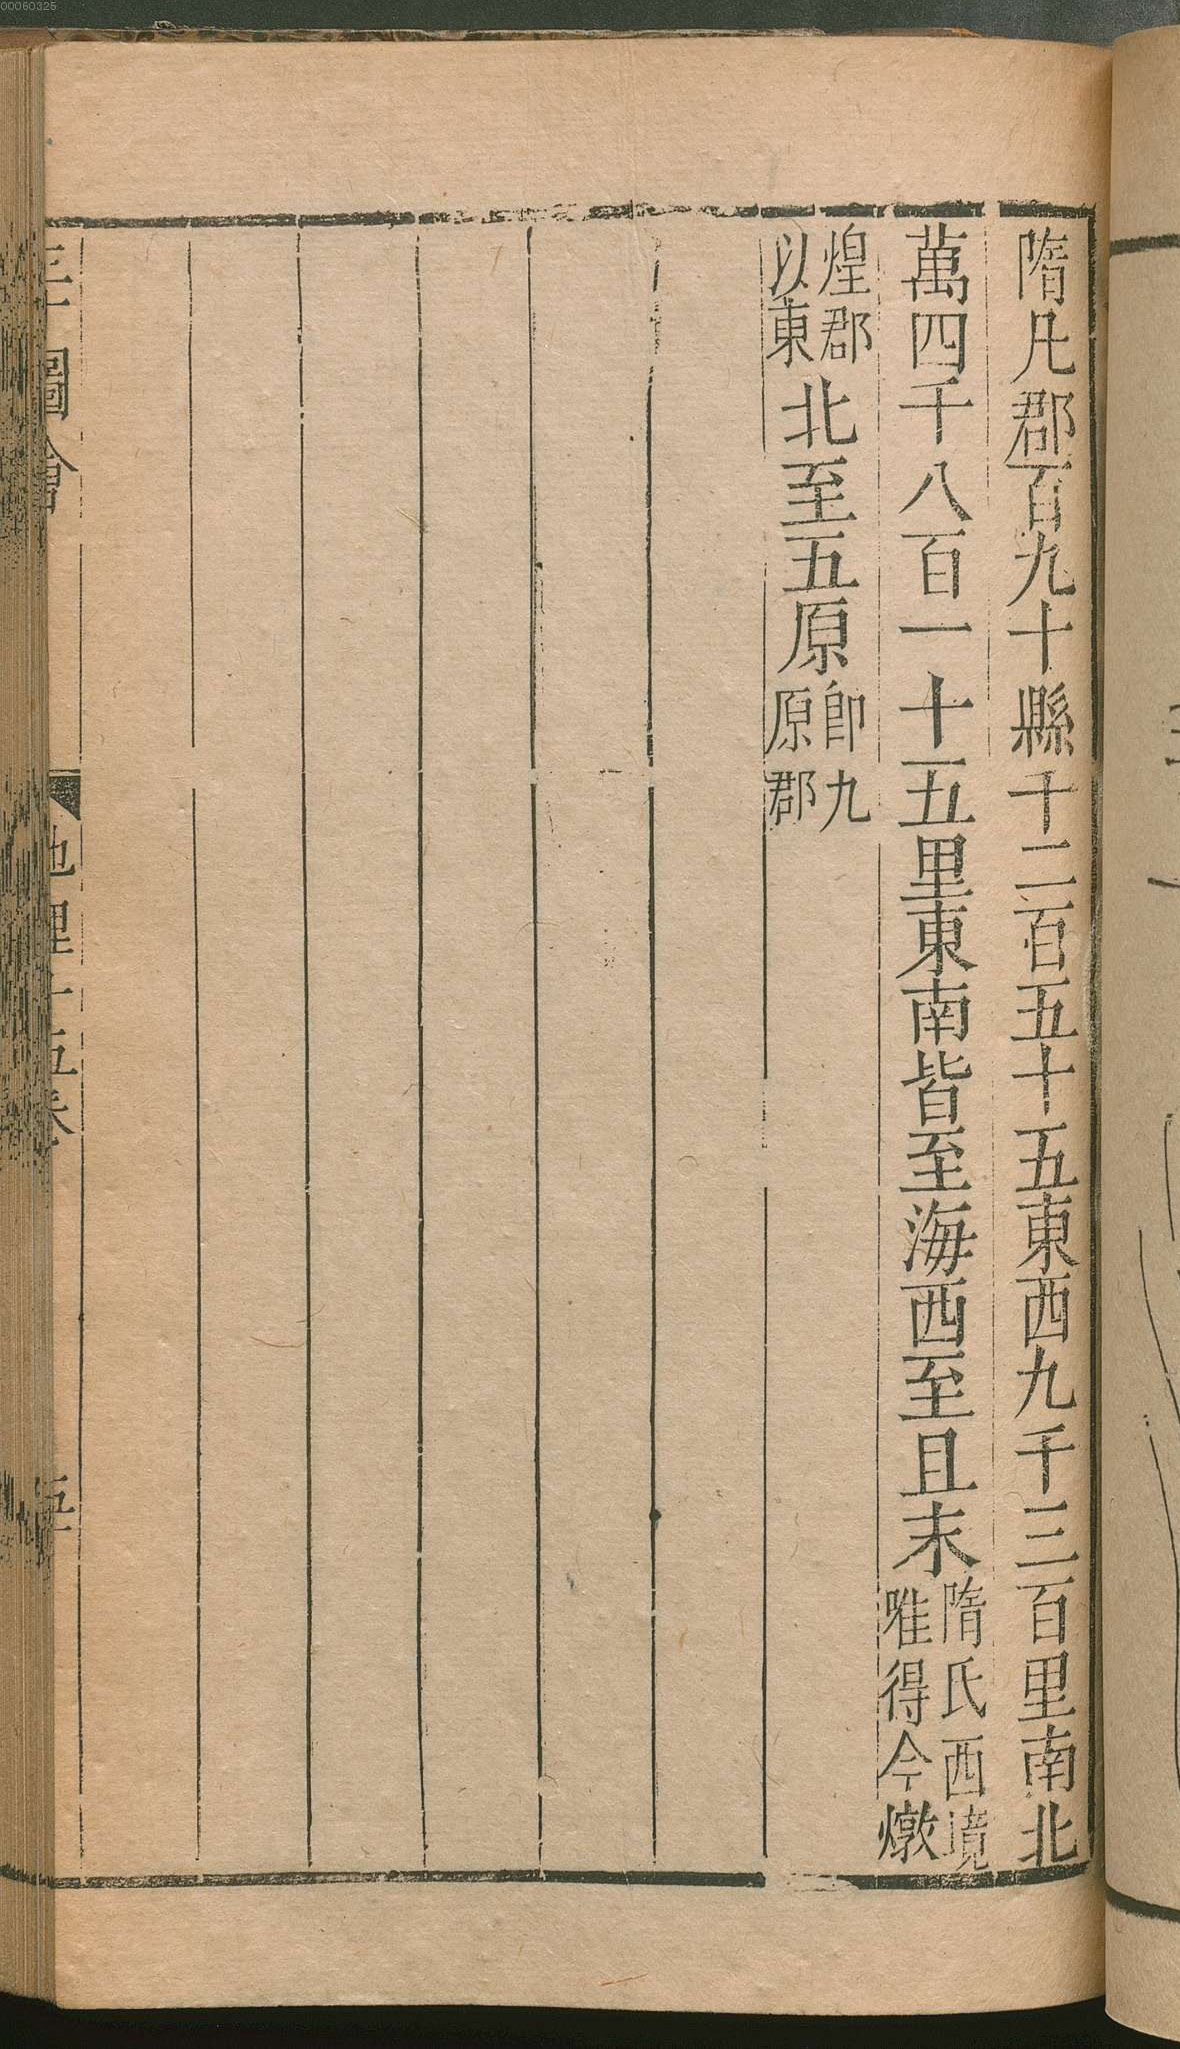 隋凡郡百九十縣千二百五十五東西九千三百里南北
萬四千八百一十五里東南皆至海西至且末隋氏西境唯得今燉
煌郡以東北至五原卽九原郡
圖會
地理十五卷
00060325